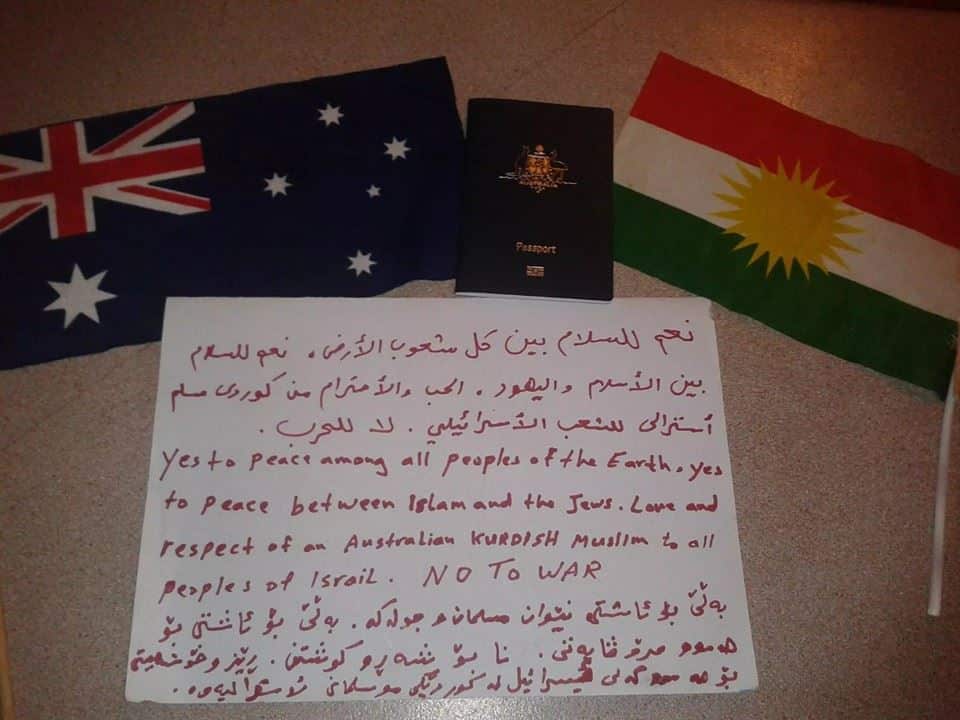 AUSTRALIA
Passport
نعم للسلام بين كل شعوب الأرض. نعم للسلام
بين الأسلام واليهود. الحب والأحترام من كوردى مسلم
أسترالى للشعب الأسرائيلي. لا للحرب.
Yes to Peace among all Peoples of the Earth. yes
to Peace between Islam and the Jews. Love and
respect of an Australian KURDISH Muslim to all
Peoples of Israil. NO TO WAR
بەڵێ بۆ ئاشتى نێوان مسلمان و جولەكە. بەڵێ بۆ ئاشتى بۆ
هەموو مرۆڤايەتى. نا بۆ شەڕ و كوشتن. ڕێز و خۆشەويستى
بۆ هەموو گەلى ئيسرائيل لە كوردێكى موسلمانى ئوستراليەوە.